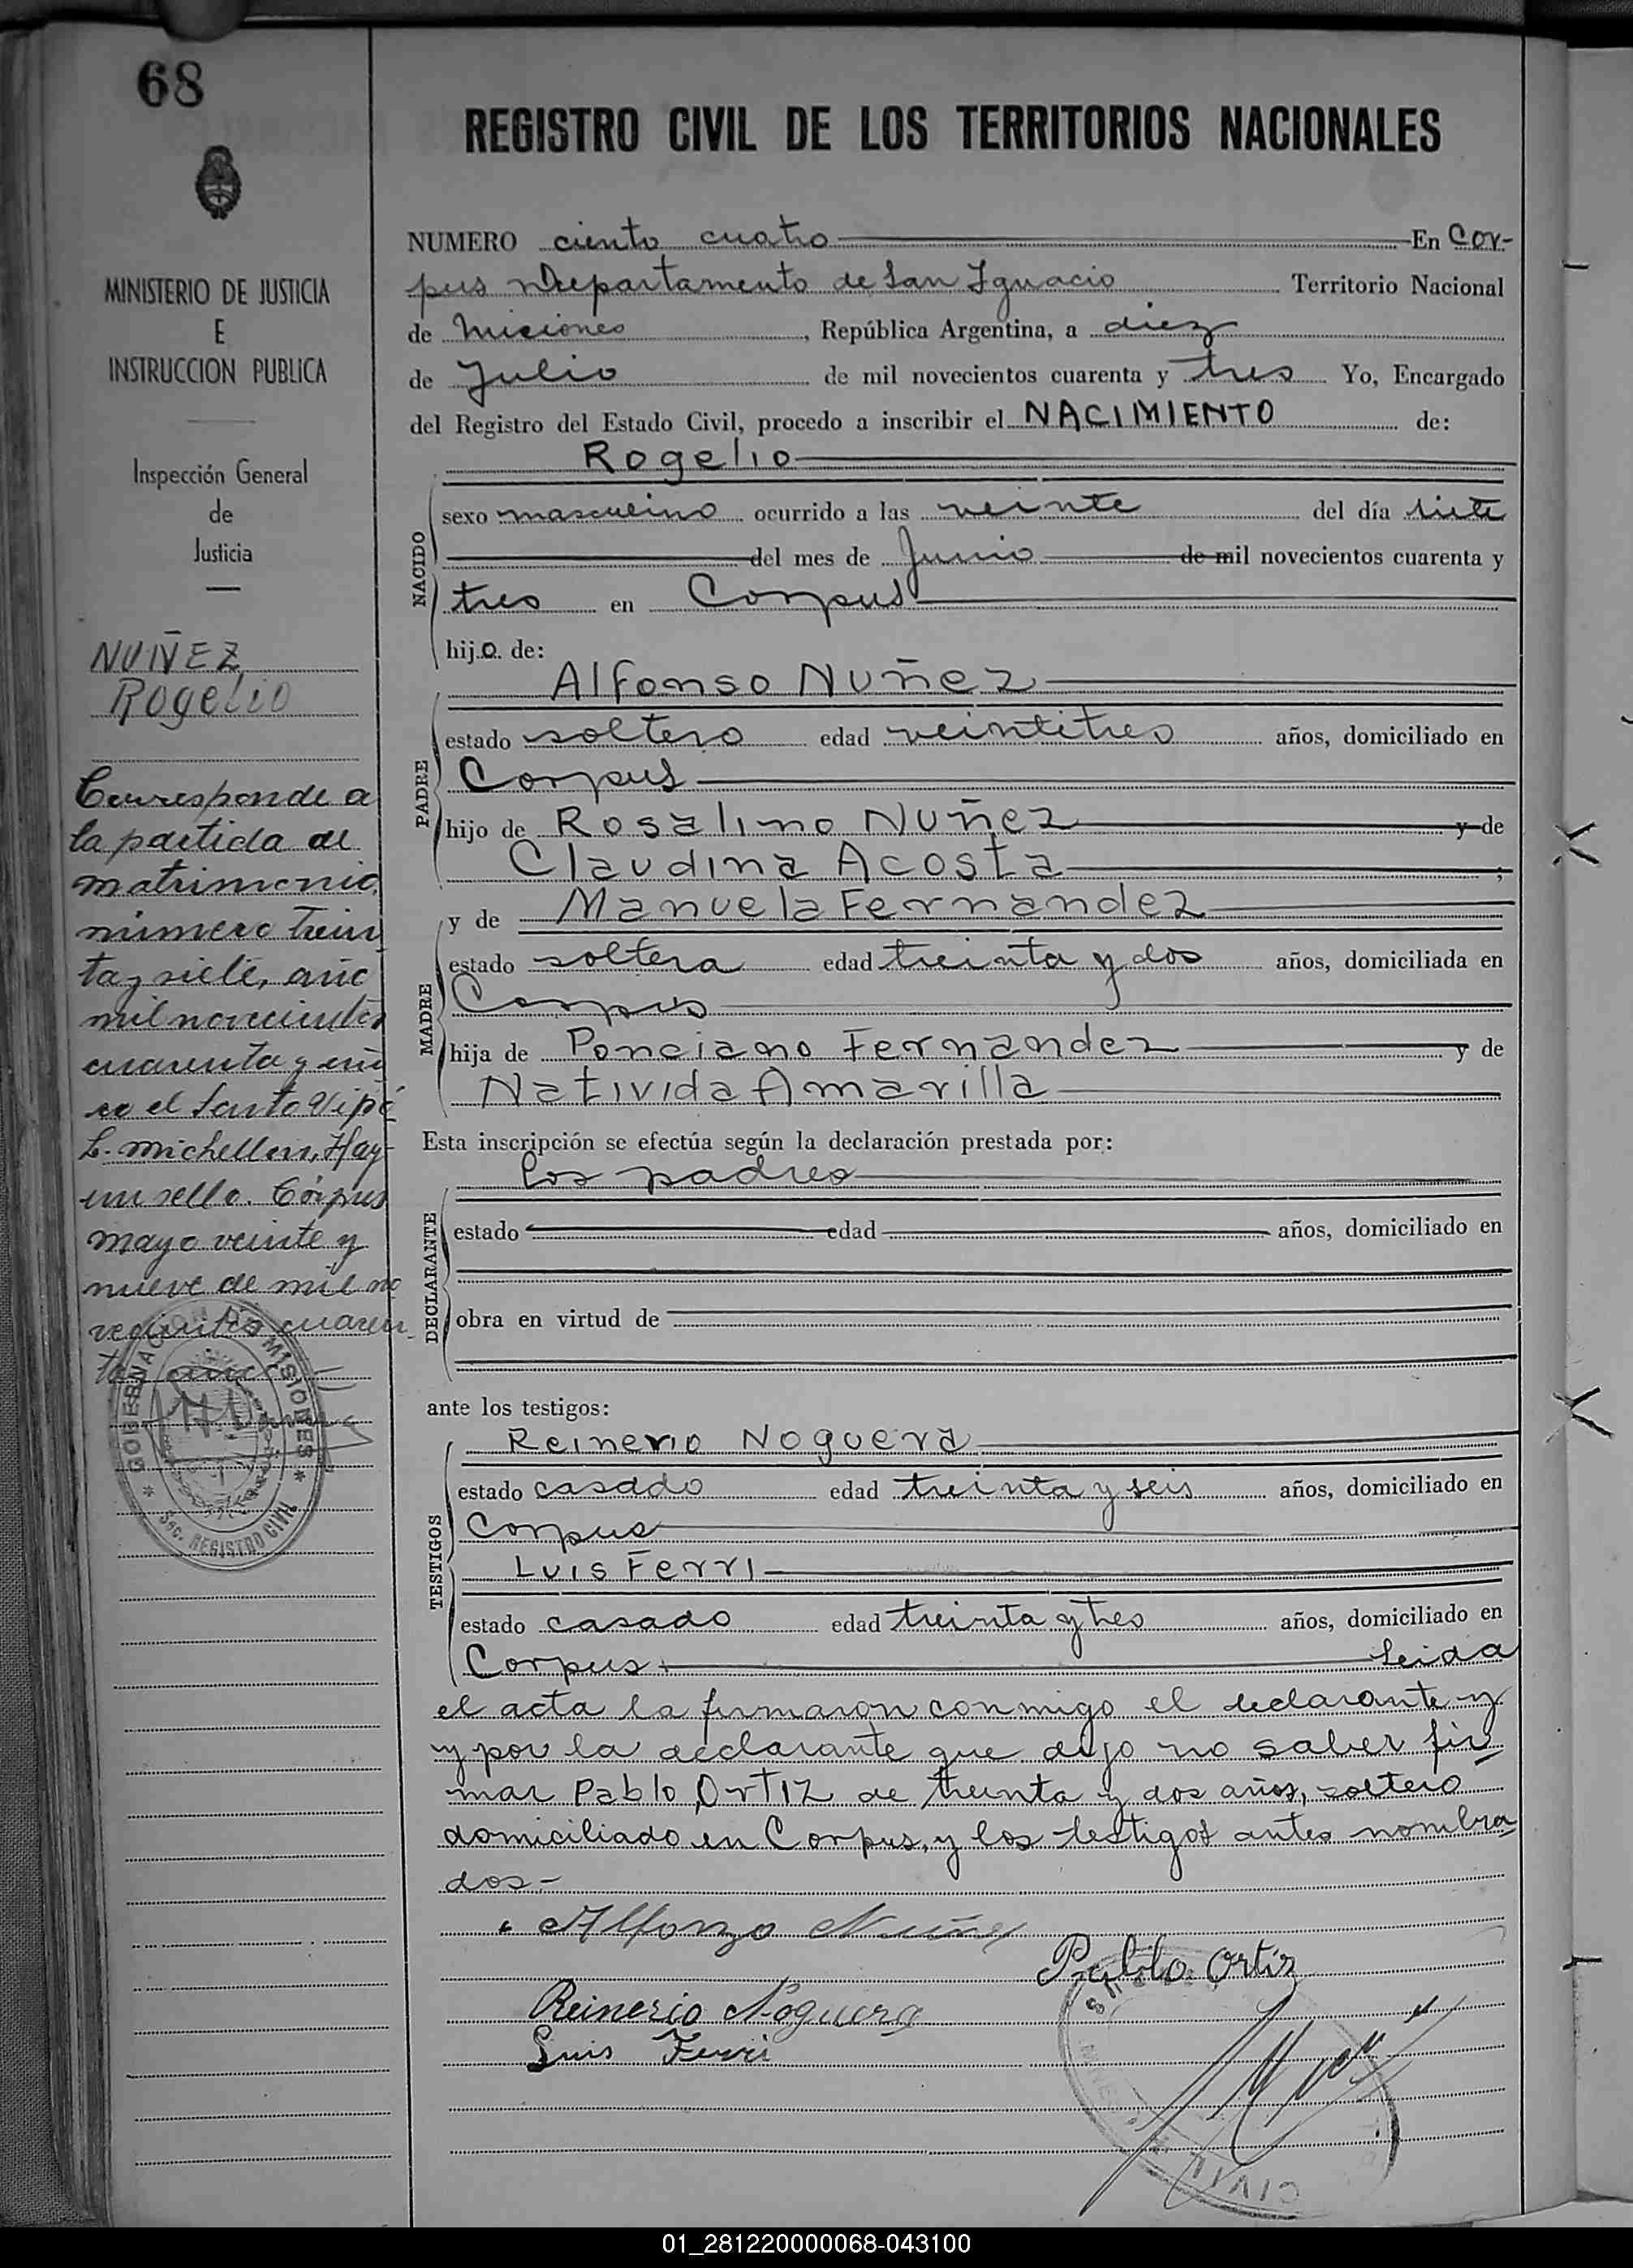 68
MINISTERIO DE JUSTICIA
E
INSTRUCCION PUBLICA
Inspección General
de
Justicia
NUÑEZ
Rogelio
Corresponde a
la partida de
matrimonio
número trein
ta y siete, año
mil novecientos
cuarenta y cin
co el Santo Pipó
L. Michellen, Hay
un sello. Córpus
mayo veinte y
nueve de mil no
vecientos cuaren
ta y
GOBERNACION MISIONES
Sec. REGISTRO CIVIL
REGISTRO CIVIL DE LOS TERRITORIOS NACIONALES
NUMERO ciento cuatro En Cor-
pus Departamento de San Ignacio Territorio Nacional
de Misiones, República Argentina, a diez
de Julio de mil novecientos cuarenta y tres Yo, Encargado
del Registro del Estado Civil, procedo a inscribir el NACIMIENTO de:
Rogelio
NACIDO
sexo masculino ocurrido a las veinte del día siete
del mes de Junio de mil novecientos cuarenta y
tres en Corpus
hijo de:
Alfonso Nuñez
PADRE
estado soltero edad veintitres años, domiciliado en
Corpus
hijo de Rosalino Nuñez y de
Claudina Acosta;
y de Manuela Fernandez
MADRE
estado soltera edad treinta y dos años, domiciliada en
Corpus
hija de Ponciano Fernandez y de
Nativida Amarilla
Esta inscripción se efectúa según la declaración prestada por:
los padres
DECLARANTE
estado edad años, domiciliado en
obra en virtud de
ante los testigos:
Reinerio Noguera
TESTIGOS
estado casado edad treinta y seis años, domiciliado en
Corpus
Luis Ferri
estado casado edad treinta y tres años, domiciliado en
Corpus. Leida
el acta la firmaron conmigo el declarante y
y por la declarante que dijo no saber fir
mar Pablo Ortiz de treinta y dos años, soltero
domiciliado en Corpus, y los testigos antes nombra
dos.-
Alfonzo Nuñez
Pablo Ortiz
Reinerio Noguera
Luis Ferri
CIVIL
01_281220000068-043100